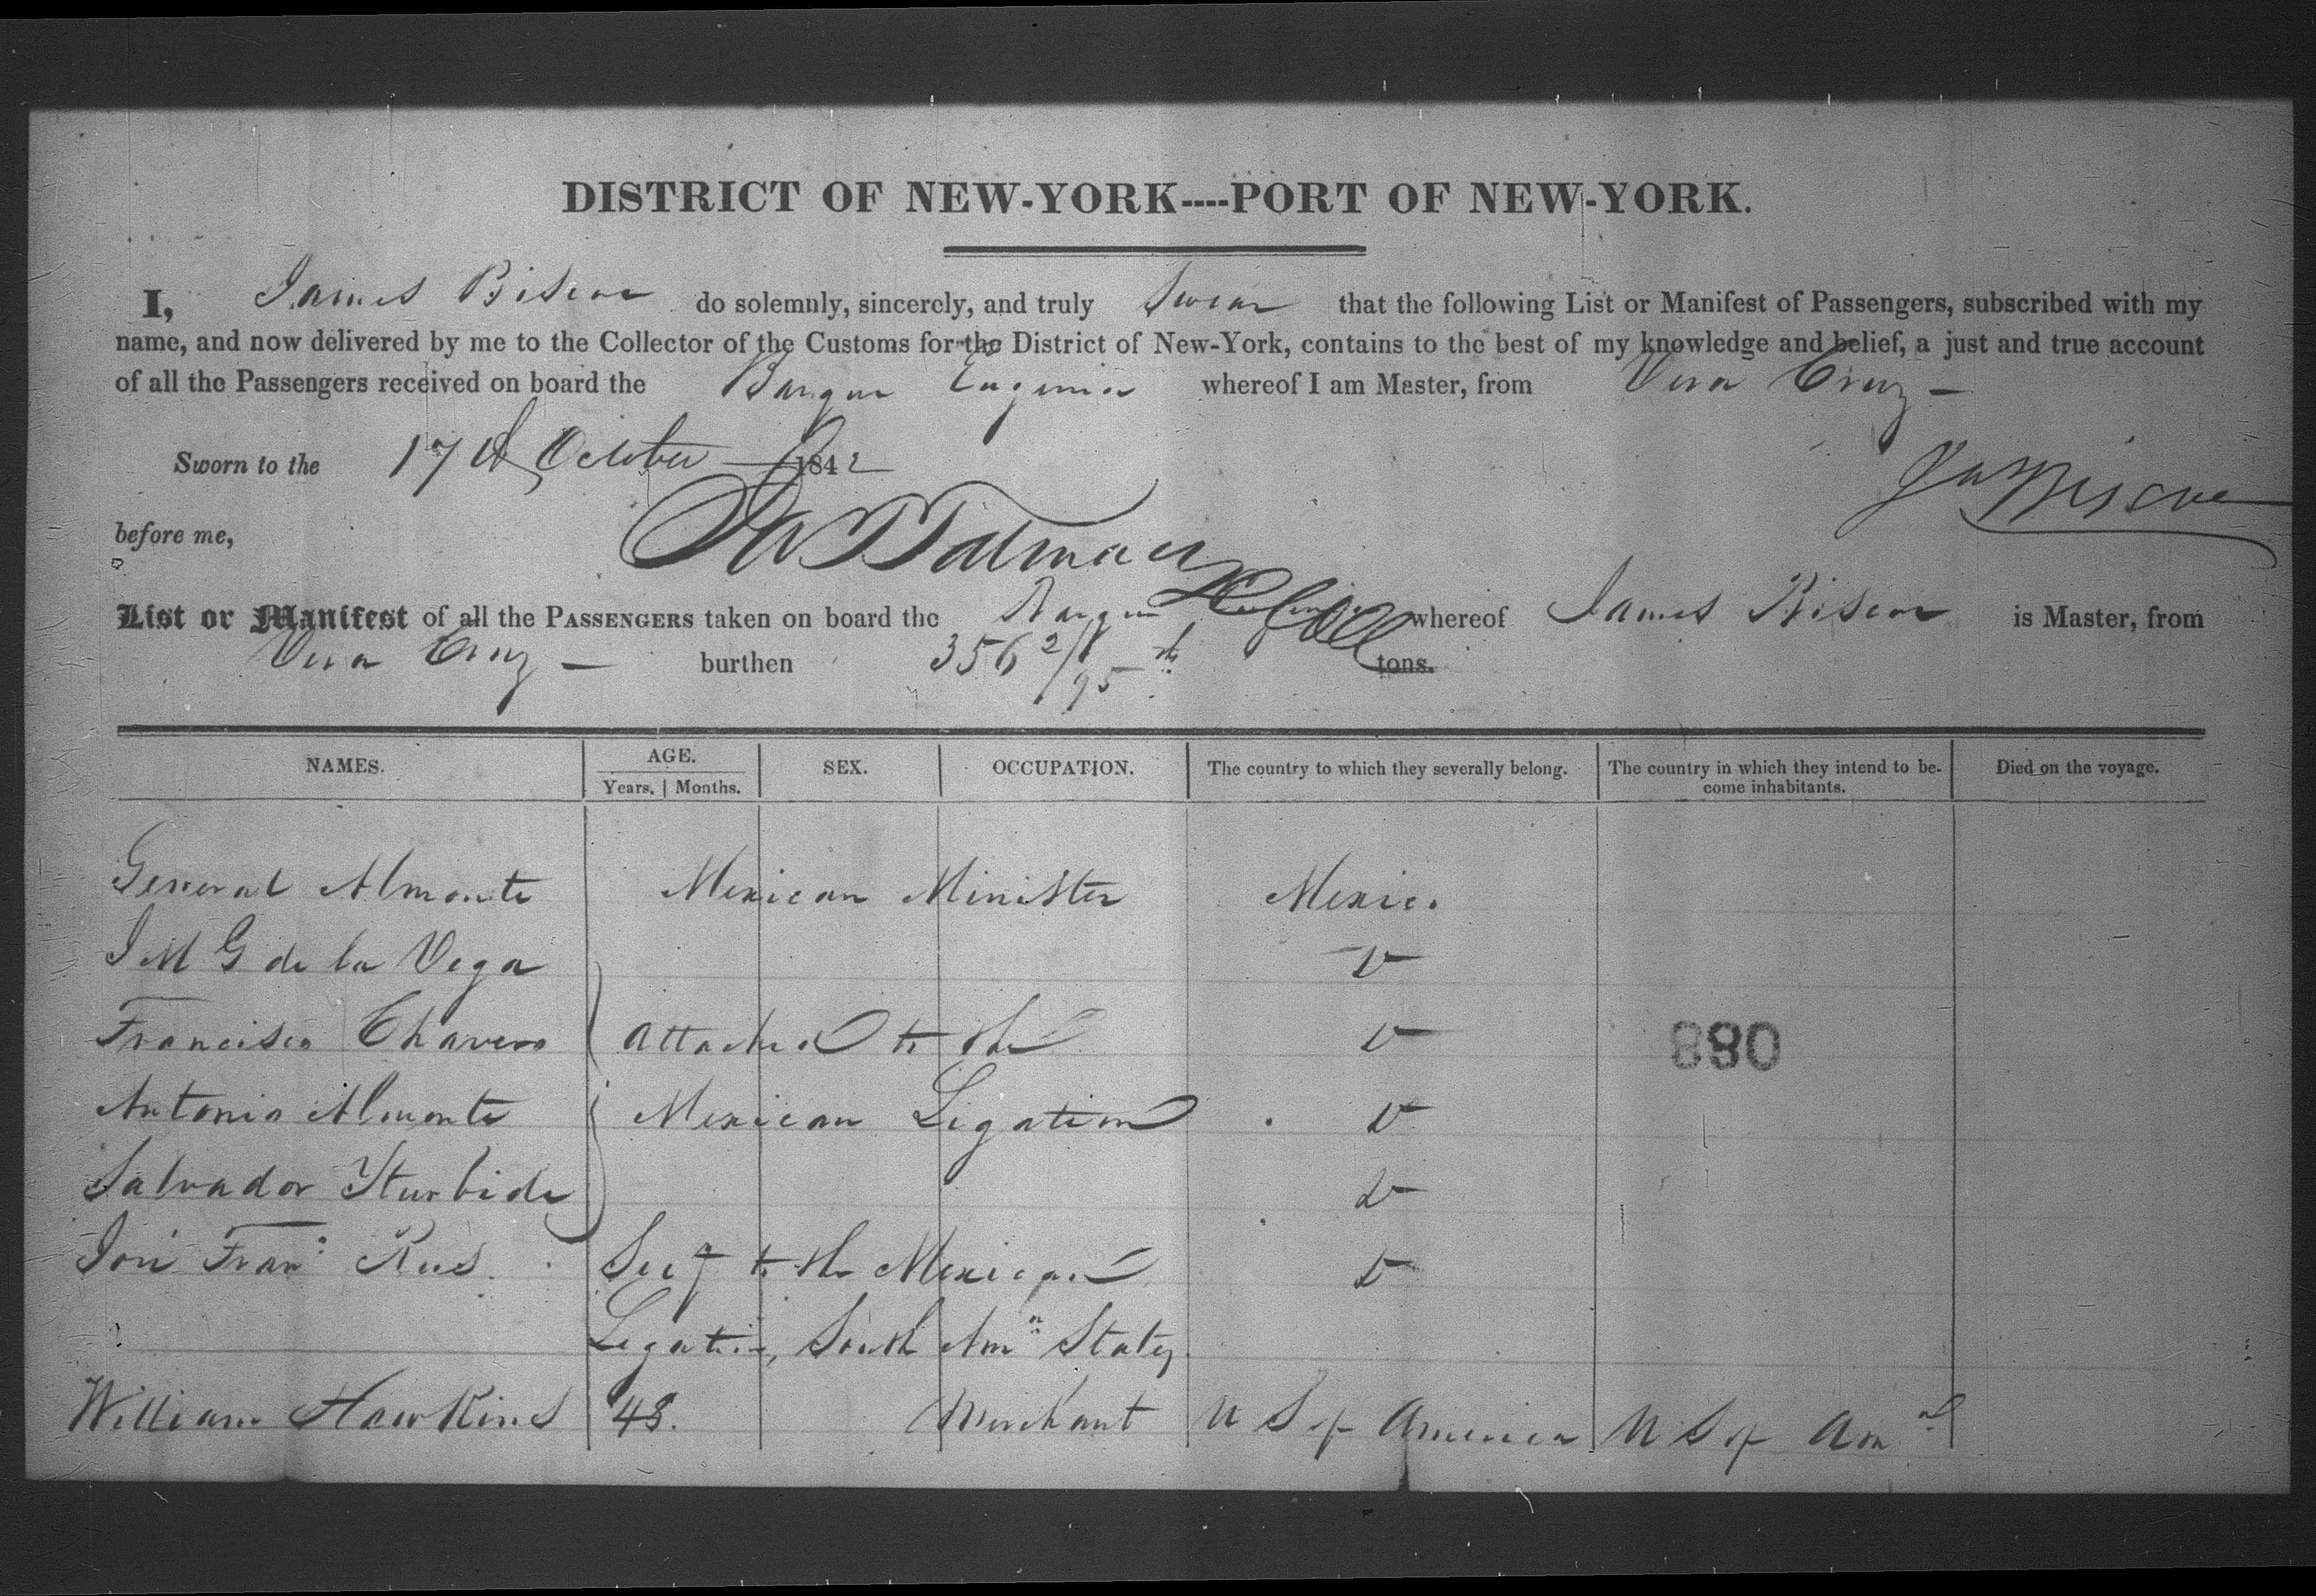 DISTRICT OF NEW-YORK----PORT OF NEW-YORK.
I, James Biscoe do solemnly, sincerely, and truly Swear that the following List or Manifest of Passengers, subscribed with my
name, and now delivered by me to the Collector of the Customs for the District of New-York, contains to the best of my knowledge and belief, a just and true account
of all the Passengers received on board the Barque Eugenia whereof I am Master, from Vera Cruz -
Sworn to the 17th October 1842
Jas Biscoe
before me,
List or Manifest of all the PASSENGERS taken on board the Barque Eugenia whereof James Biscoe is Master, from
Vera Cruz - burthen 356 2/95th tons.
NAMES. AGE. SEX. OCCUPATION. The country to which they severally belong. The country in which they intend to be- Died on the voyage.
Years. Months. come inhabitants.
General Almonte Mexican Minister Mexico
J M G de la Vega
Francisco Chavero attached to the 880
Antonio Almonte Mexican Legation
Salvador Yturbide
José Fran.o Rus. Secy to the Mexican
Legation, South Amn States
William Hawkins 48. Merchant U S of America U S of Am